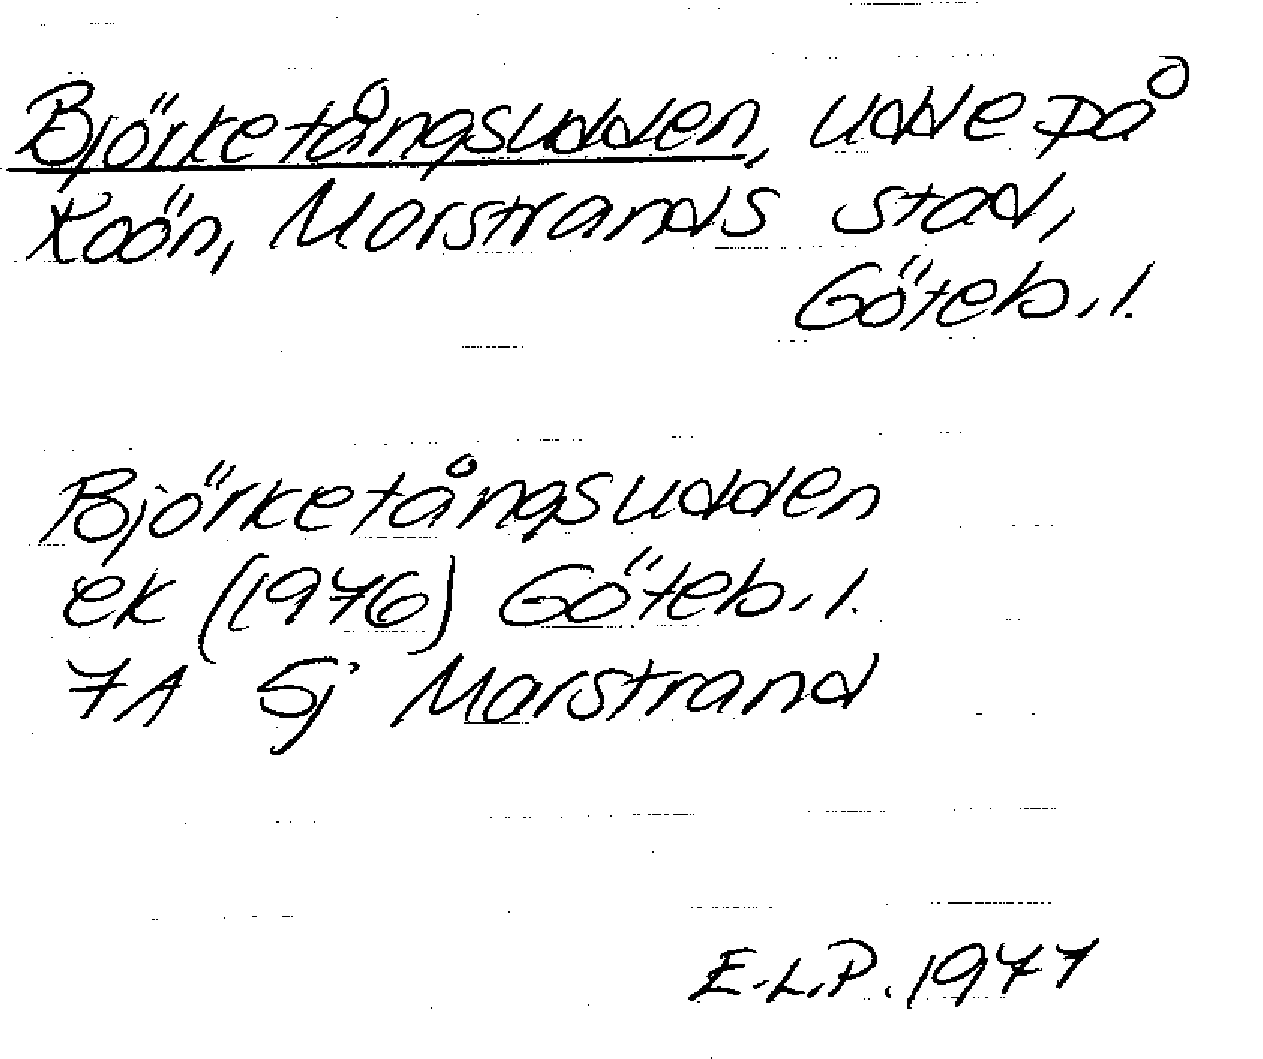 Björketångsudden, udde på
Koön, Marstrands stad,
Göteb. l.
Björketångsudden
ek (1976) Göteb. l.
7A 5j Marstrand
E.L.P. 1977